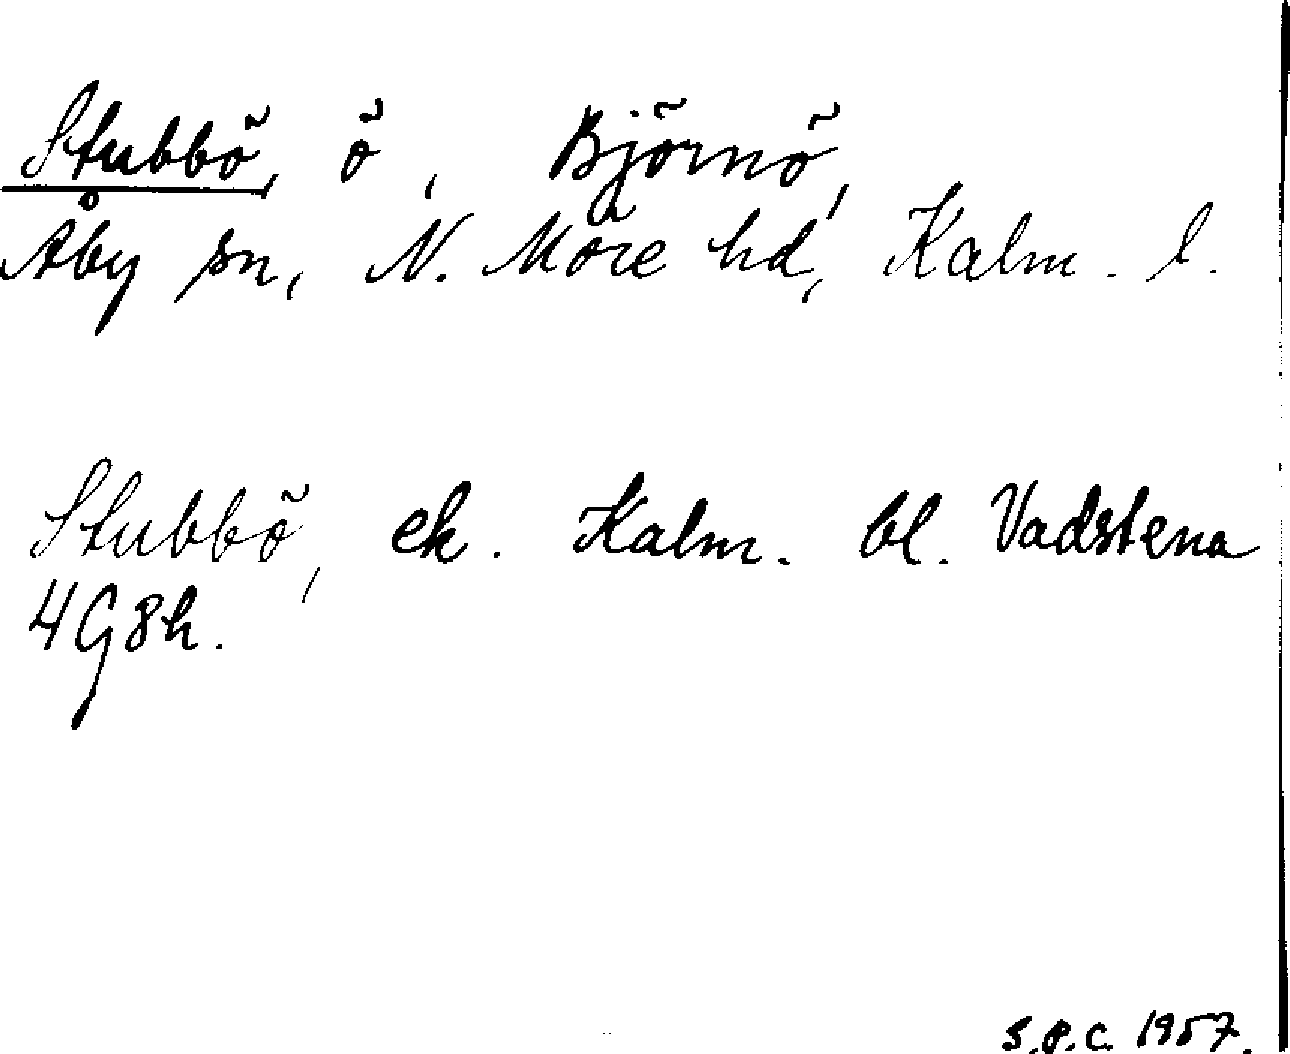 Stubbö, ö, Björnö,
Åby sn, N. Möre hd, Kalm. l.
Stubbö, ek. Kalm. bl. Vadstena
4G8h.
S.P.C. 1957.